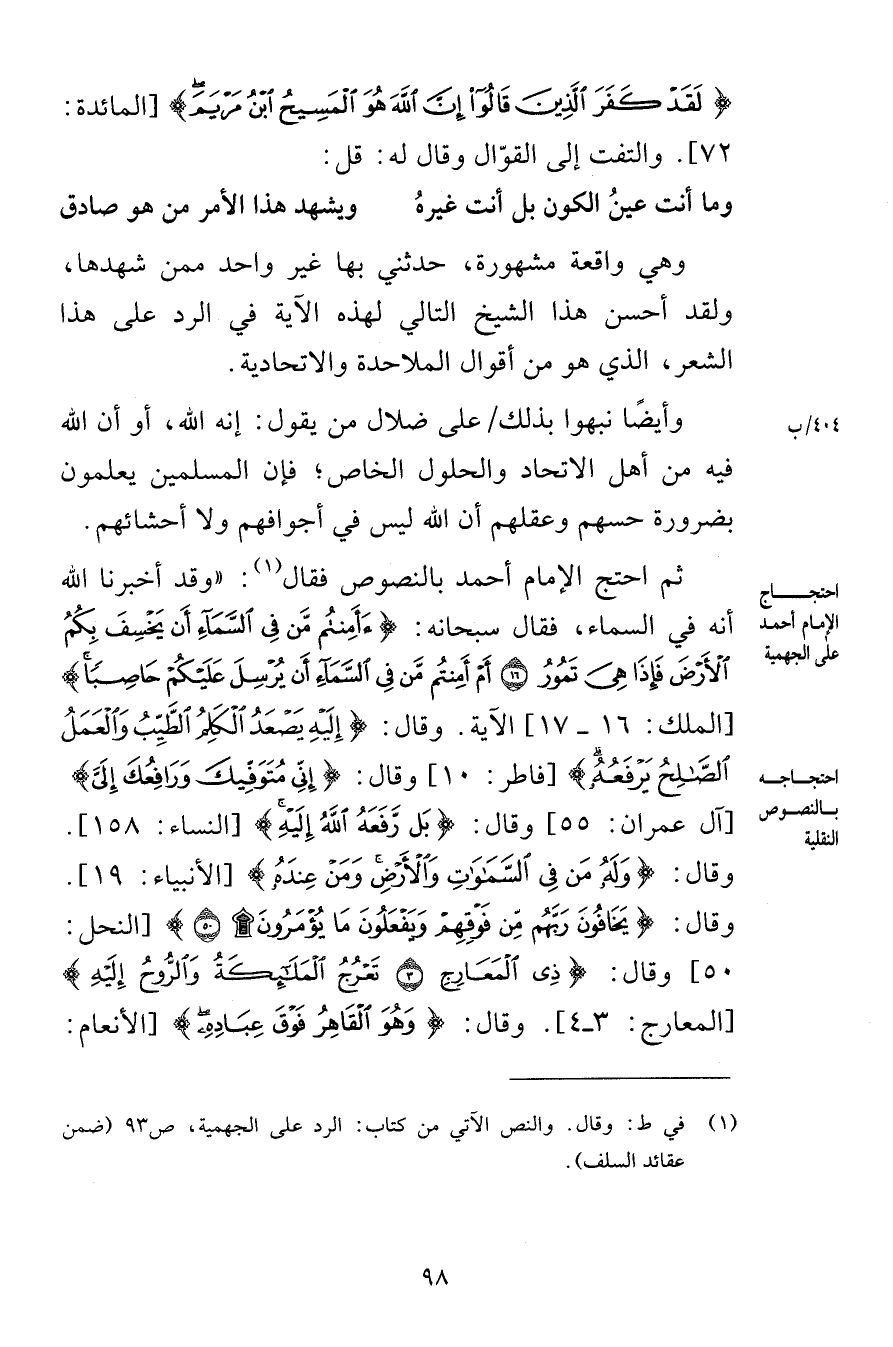 ﴿ لَقَدْ كَفَرَ ٱلَّذِينَ قَالُوٓا۟ إِنَّ ٱللَّهَ هُوَ ٱلْمَسِيحُ ٱبْنُ مَرْيَمَ ۖ ﴾ [المائدة:
٧٢]. والتفت إلى القوّال وقال له: قل:
وما أنت عينُ الكون بل أنت غيرهُ ويشهد هذا الأمر من هو صادق
وهي واقعة مشهورة، حدثني بها غير واحد ممن شهدها،
ولقد أحسن هذا الشيخ التالي لهذه الآية في الرد على هذا
الشعر، الذي هو من أقوال الملاحدة والاتحادية.
وأيضًا نبهوا بذلك/ على ضلال من يقول: إنه الله، أو أن الله
٤٠٤/ب
فيه من أهل الاتحاد والحلول الخاص؛ فإن المسلمين يعلمون
بضرورة حسهم وعقلهم أن الله ليس في أجوافهم ولا أحشائهم.
ثم احتج الإمام أحمد بالنصوص فقال(١): «وقد أخبرنا الله
احتجـــــاج
الإمام أحمد
على الجهمية
أنه في السماء، فقال سبحانه: ﴿ ءَأَمِنتُم مَّن فِى ٱلسَّمَآءِ أَن يَخْسِفَ بِكُمُ
ٱلْأَرْضَ فَإِذَا هِىَ تَمُورُ ١٦ أَمْ أَمِنتُم مَّن فِى ٱلسَّمَآءِ أَن يُرْسِلَ عَلَيْكُمْ حَاصِبًا ۖ ﴾
[الملك: ١٦ ـ ١٧] الآية. وقال: ﴿ إِلَيْهِ يَصْعَدُ ٱلْكَلِمُ ٱلطَّيِّبُ وَٱلْعَمَلُ
ٱلصَّٰلِحُ يَرْفَعُهُۥ ۚ ﴾ [فاطر: ١٠] وقال: ﴿ إِنِّى مُتَوَفِّيكَ وَرَافِعُكَ إِلَىَّ ﴾
احتجـاجـه
بـالنصـوص
النقلية
[آل عمران: ٥٥] وقال: ﴿ بَل رَّفَعَهُ ٱللَّهُ إِلَيْهِ ۚ ﴾ [النساء: ١٥٨].
وقال: ﴿ وَلَهُۥ مَن فِى ٱلسَّمَٰوَٰتِ وَٱلْأَرْضِ ۚ وَمَنْ عِندَهُۥ ﴾ [الأنبياء: ١٩].
وقال: ﴿ يَخَافُونَ رَبَّهُم مِّن فَوْقِهِمْ وَيَفْعَلُونَ مَا يُؤْمَرُونَ ۩ ٥٠ ﴾ [النحل:
٥٠] وقال: ﴿ ذِى ٱلْمَعَارِجِ ٣ تَعْرُجُ ٱلْمَلَٰٓئِكَةُ وَٱلرُّوحُ إِلَيْهِ ﴾
[المعارج: ٣ـ٤]. وقال: ﴿ وَهُوَ ٱلْقَاهِرُ فَوْقَ عِبَادِهِۦ ۖ ﴾ [الأنعام:
(١) في ط: وقال. والنص الآتي من كتاب: الرد على الجهمية، ص٩٣ (ضمن
عقائد السلف).
٩٨